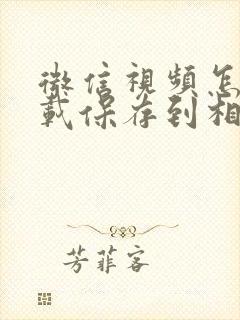 微信視頻怎
載保存到相
芳菲客